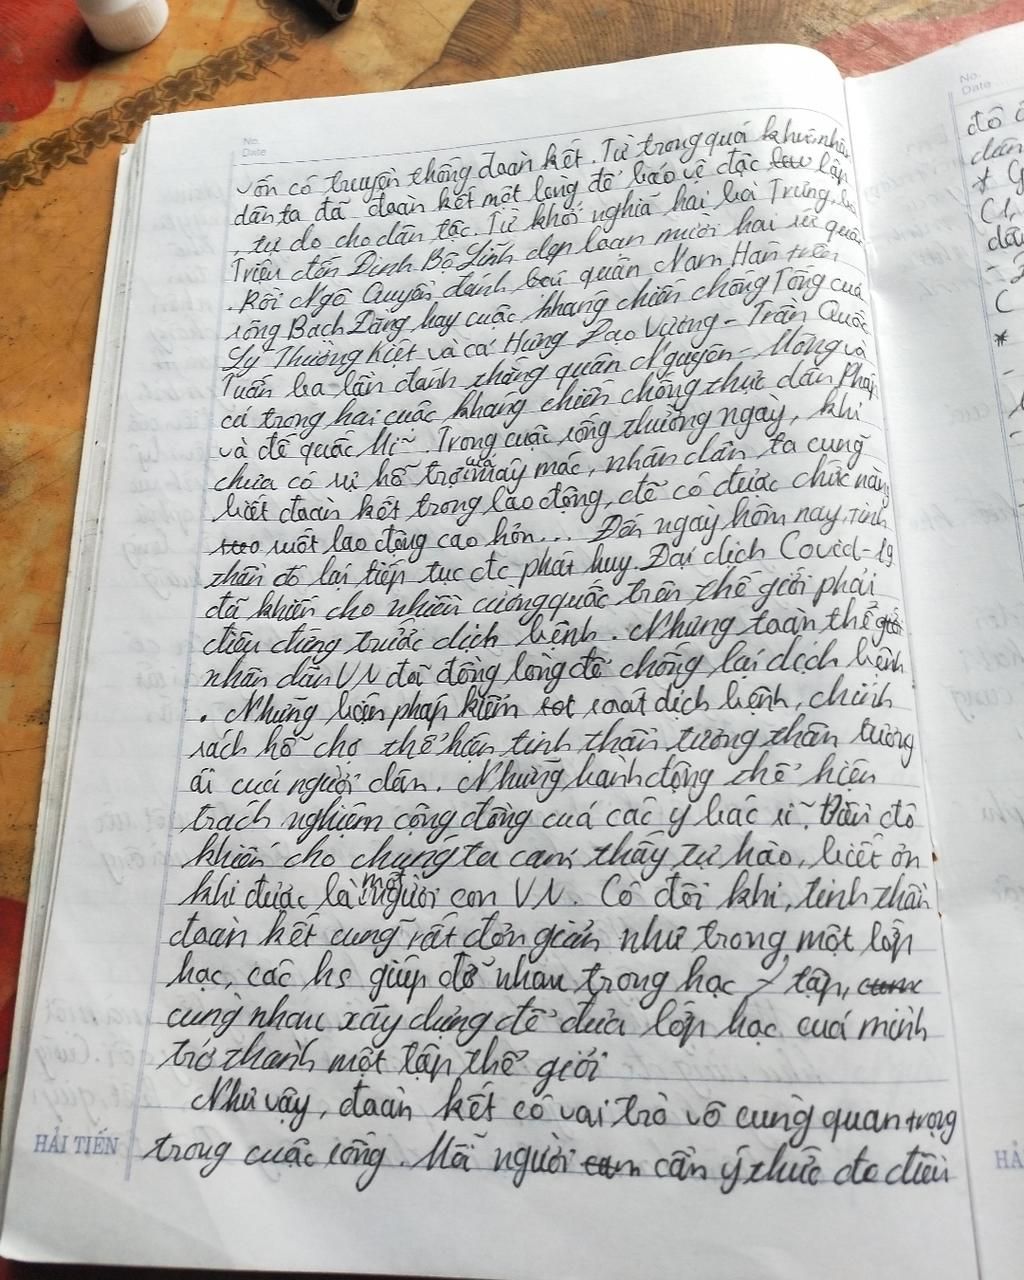 No.
Date
vốn có truyền thống đoàn kết. Từ trong quá khứ, nhân
dân ta đã đoàn kết một lòng để bảo vệ độc lập
, tự do cho dân tộc. Từ khởi nghĩa hai bà Trưng, bà
Triệu đến Đinh Bộ Lĩnh dẹp loạn mười hai sứ quân
. Rồi Ngô Quyền đánh bại quân Nam Hán trên
sông Bạch Đằng hay cuộc kháng chiến chống Tống của
Lý Thường Kiệt và cả Hưng Đạo Vương - Trần Quốc
Tuấn ba lần đánh thắng quân Nguyên - Mông và
cả trong hai cuộc kháng chiến chống thực dân Pháp
và đế quốc Mĩ. Trong cuộc sống thường ngày, khi
chưa có sự hỗ trợ của máy móc, nhân dân ta cũng
biết đoàn kết trong lao động, để có được chức năng
suất lao động cao hơn... Đến ngày hôm nay, tinh
thần đó lại tiếp tục đc phát huy. Đại dịch Covid-19
đã khiến cho nhiều cường quốc trên thế giới phải
điêu đứng trước dịch bệnh. Nhưng toàn thể
nhân dân VN đã đồng lòng để chống lại dịch bệnh
. Những biện pháp kiểm soát dịch bệnh, chính
sách hỗ chợ thể hiện tinh thần tương thân tương
ái của người dân. Những hành động thể hiện
trách nghiệm cộng đồng của các y bác sĩ. Điều đó
khiến cho chúng ta cảm thấy tự hào, biết ơn
khi được là một người con VN. Có đôi khi, tinh thần
đoàn kết cũng rất đơn giản như trong một lớp
học, các hs giúp đỡ nhau trong học tập,
cùng nhau xây dựng để đưa lớp học của mình
trở thành một tập thể giỏi
Như vậy, đoàn kết có vai trò vô cùng quan trọng
trong cuộc sống. Mỗi người cần ý thức đc điều
HẢI TIẾN
No.
Date